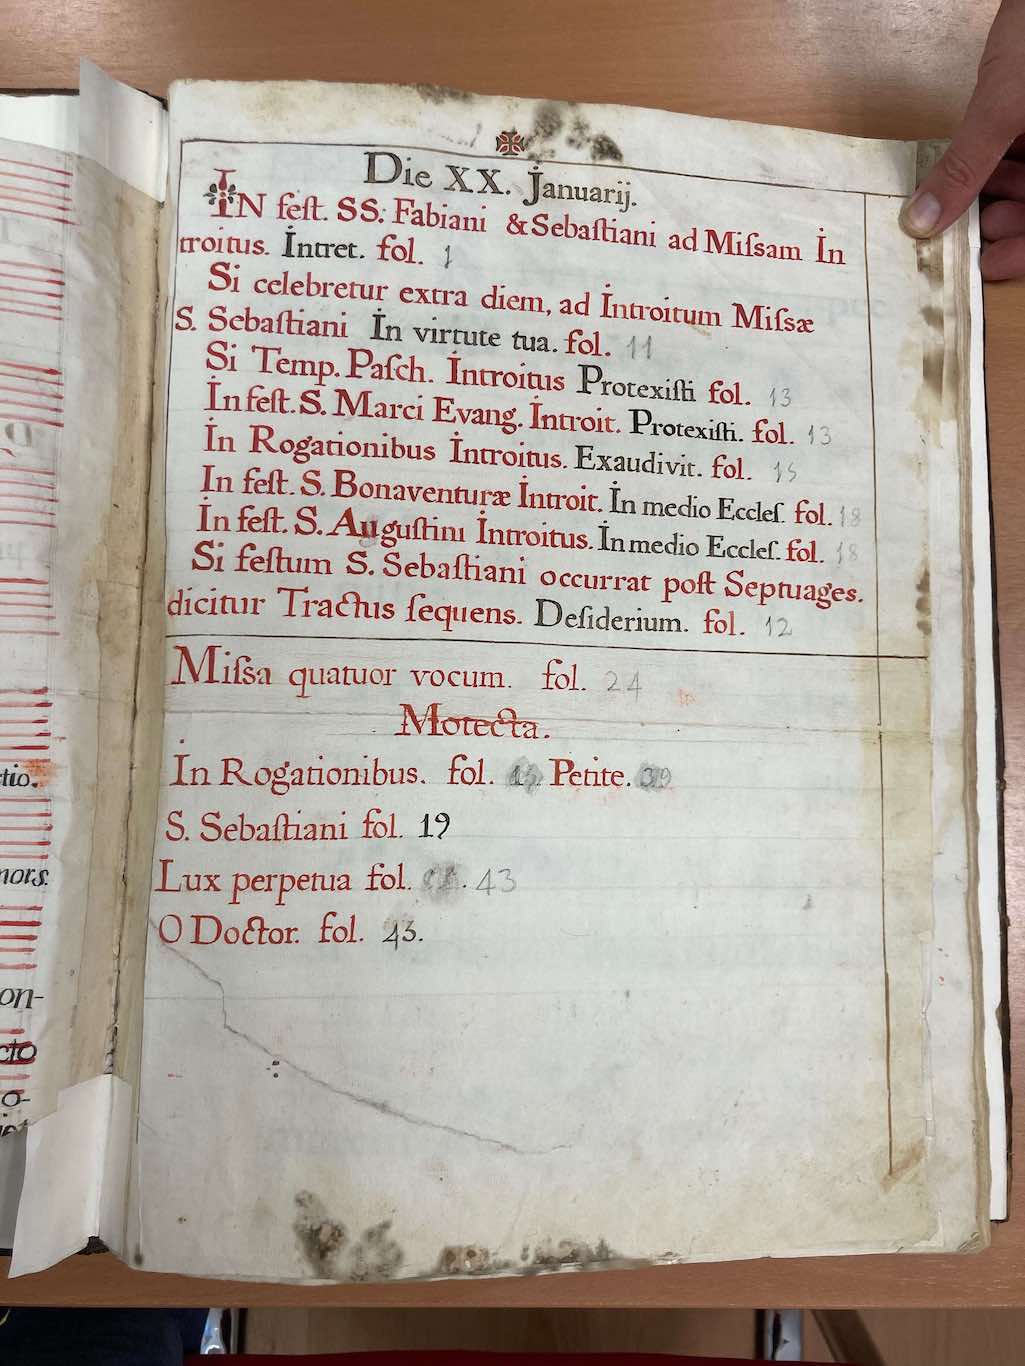 Die XX. Januarij.
IN feſt. SS: Fabiani & Sebaſtiani ad Miſsam In
troitus. Intret. fol. 1
Si celebretur extra diem, ad Introitum Miſsæ
S. Sebaſtiani In virtute tua. fol. 11
Si Temp. Paſch. Introitus Protexiſti fol. 13
In feſt. S. Marci Evang. Introit. Protexiſti. fol. 13
In Rogationibus Introitus. Exaudivit. fol. 15
In feſt. S. Bonaventuræ Introit. In medio Eccleſ. fol. 18
In feſt. S. Auguſtini Introitus. In medio Eccleſ. fol. 18
Si feſtum S. Sebaſtiani occurrat poſt Septuages.
dicitur Tractus ſequens. Deſiderium. fol. 12
Miſsa quatuor vocum. fol. 24
Motecta.
In Rogationibus. fol. Petite. 39
S. Sebaſtiani fol. 19
Lux perpetua fol. 43
O Doctor. fol. 43.
tio.
mors.
on-
cto
o-